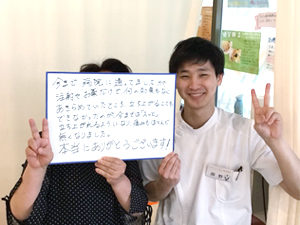 今まで病院に通ってましたが
注射やお薬だけで何の効果もなく
あきらめていたところ、立ち上がることも
できなかったのが今までは「スッと」
立ち上がれるようになり、痛みもほとんど
無くなりました。
本当にありがとうございます!